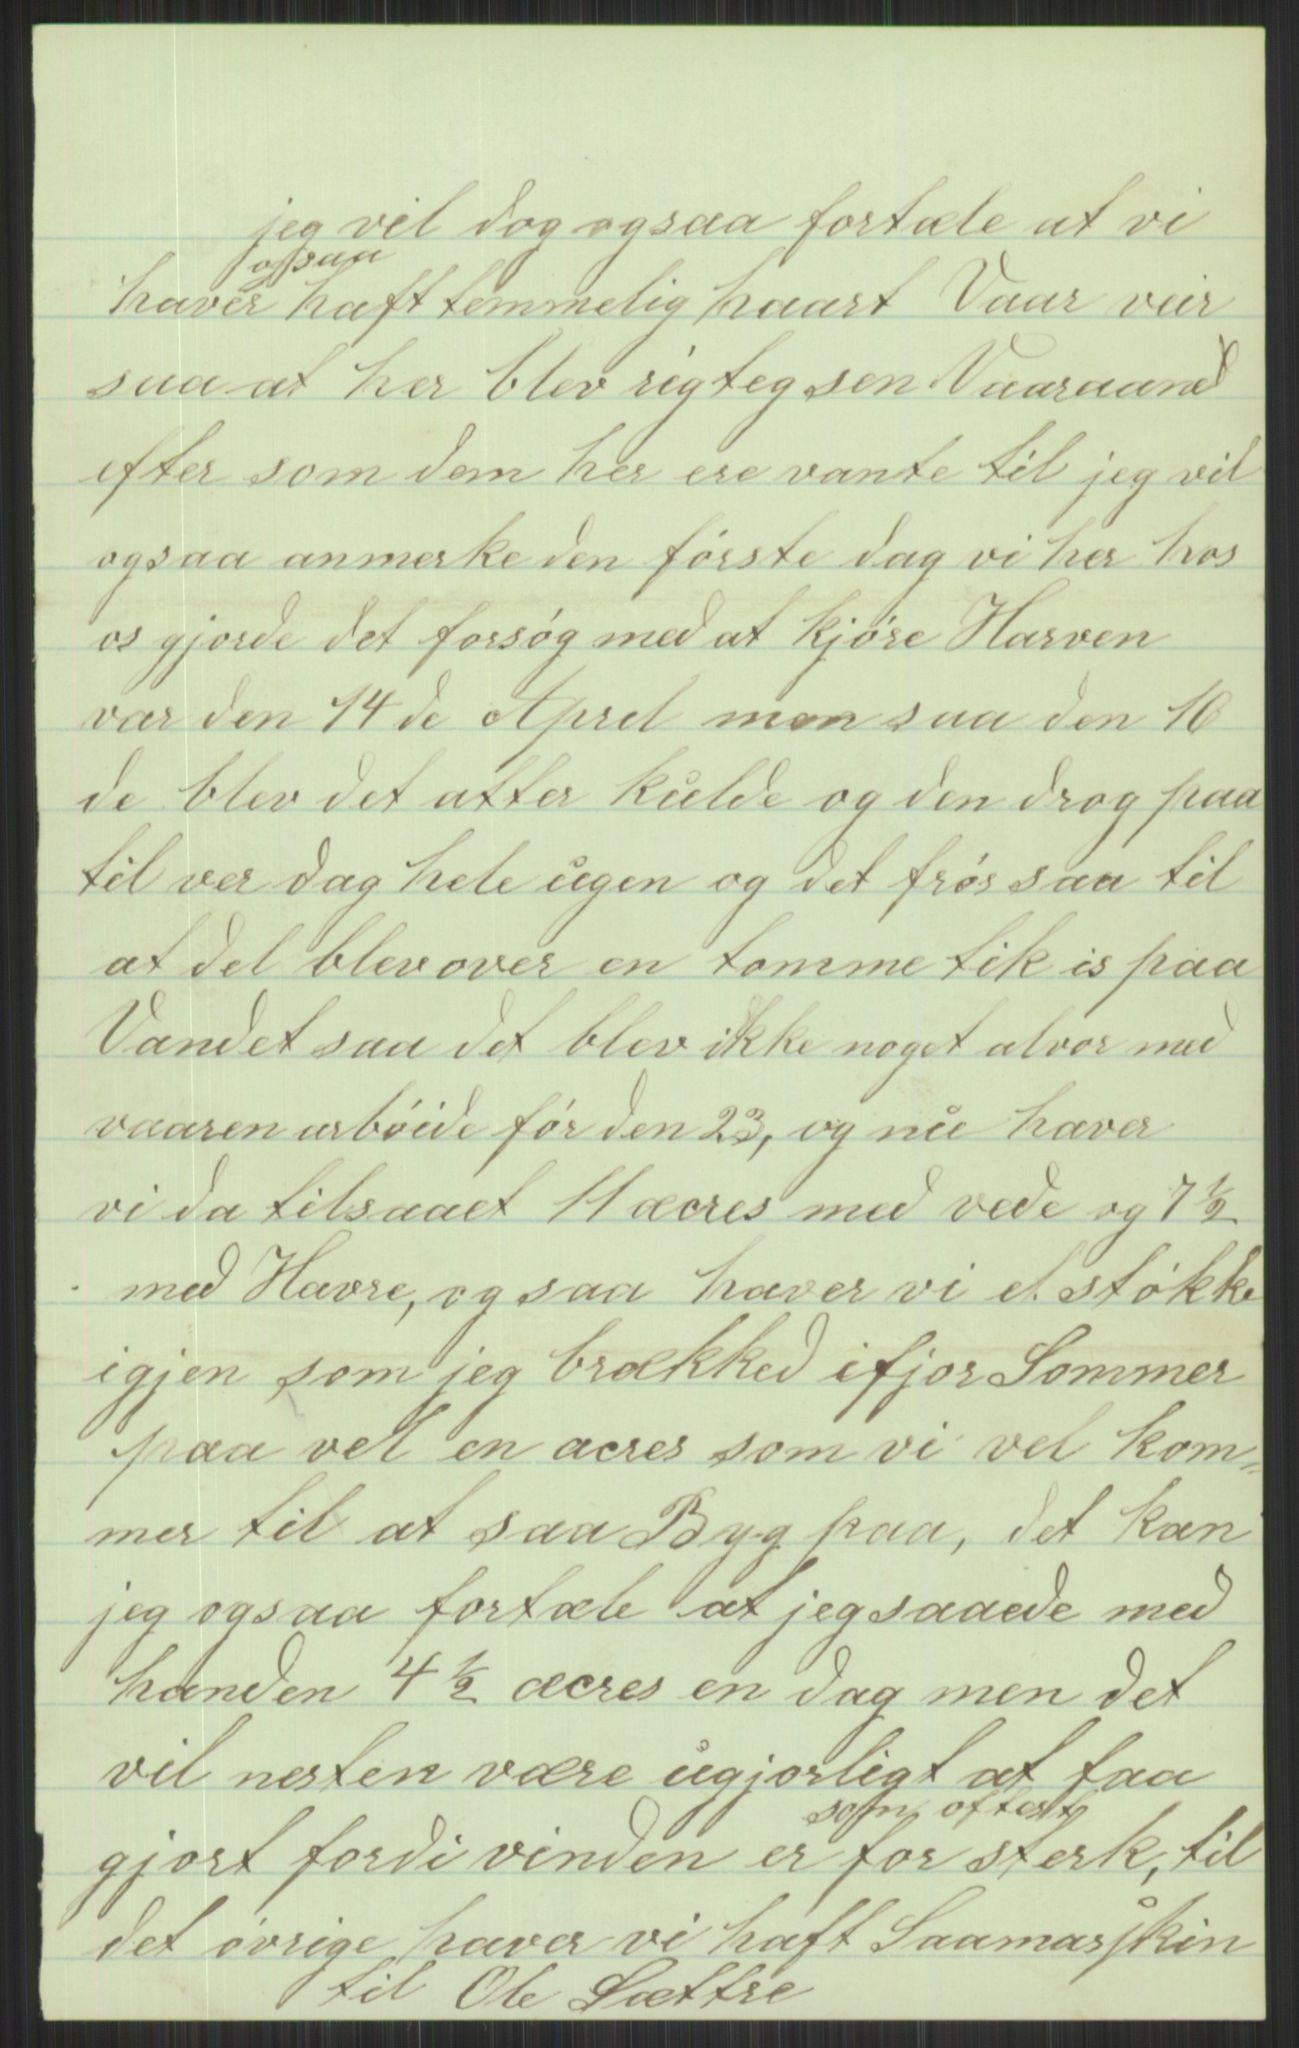 jeg vil dog ogsaa fortæle at vi
ogsaa
haver haft temmelig haart Vaar veir
saa at her blev rigteg sen Vaaraand
efter som dem her ere vante til jeg vil
ogsaa anmerke den første dag vi her hos
os gjorde det forsøg med at kjøre Harven
var den 14 de Aprel men saa den 16
de blev det atter kulde og den drog paa
til ver dag hele ugen og det frøs saa til
at del blev over en tomme tik is paa
Vandet saa det blev ikke noget alvor med
vaaren arbøide før den 23, og nu haver
vi da tilsaaet 11 æcres med vede og 7 1/2
med Havre, og saa haver vi et støkke
igjen som jeg brækked ifjor Sommer
paa vel en acres som vi vel kom=
mer til at saa Byg paa, det kan
jeg ogsaa fortæle at jeg saaede med
handen 4 1/2 æcres en dag men det
vil nesten være ugjorligt at faa
som oftest
gjort fordi vinden er for sterk, til
det øvrige haver vi haft Saamaskin
til Ole Sættre